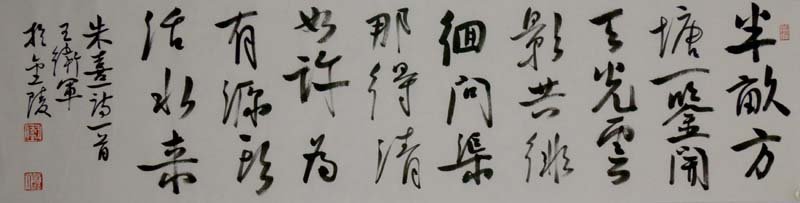 半畝方
塘一鑒開
天光雲
影共徘
徊問渠
那得清
如許為
有源頭
活水来
朱熹詩一首
王衛軍
於金陵